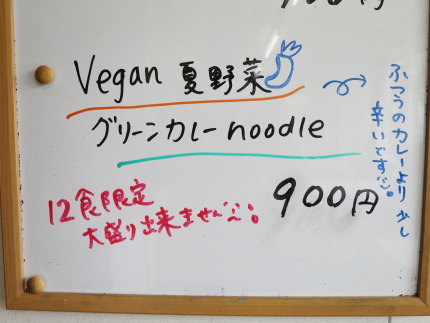 Vegan 夏野菜
グリーンカレーnoodle
900円
12食限定
大盛り出来ません
ふつうのカレーより少し
辛いです。